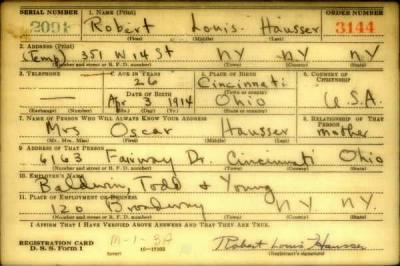 SERIAL NUMBER 1. NAME (Print) ORDER NUMBER
2091 Robert Louis Hausser 3144
(First) (Middle) (Last)
2. ADDRESS (Print)
(Temp) 351 W 14 St NY NY NY
(Number and street or R. F. D. number) (Town) (County) (State)
3. TELEPHONE 4. AGE IN YEARS 5. PLACE OF BIRTH 6. COUNTRY OF CITIZENSHIP
26 Cincinnati
DATE OF BIRTH (Town or county)
Apr 3 1914 Ohio U.S.A.
(Exchange) (Number) (Mo.) (Day) (Yr.) (State or country)
7. NAME OF PERSON WHO WILL ALWAYS KNOW YOUR ADDRESS 8. RELATIONSHIP OF THAT PERSON
Mrs Oscar Hausser mother
(Mr., Mrs., Miss) (First) (Middle) (Last)
9. ADDRESS OF THAT PERSON
6163 Fairway Dr. Cincinnati Ohio
(Number and street or R. F. D. number) (Town) (County) (State)
10. EMPLOYER'S NAME
Baldwin, Todd & Young
11. PLACE OF EMPLOYMENT OR BUSINESS
120 Broadway NY NY.
(Number and street or R. F. D. number) (Town) (County) (State)
I AFFIRM THAT I HAVE VERIFIED ABOVE ANSWERS AND THAT THEY ARE TRUE.
REGISTRATION CARD
D. S. S. Form 1 (over) Robert Louis Hausser
(Registrant's signature)